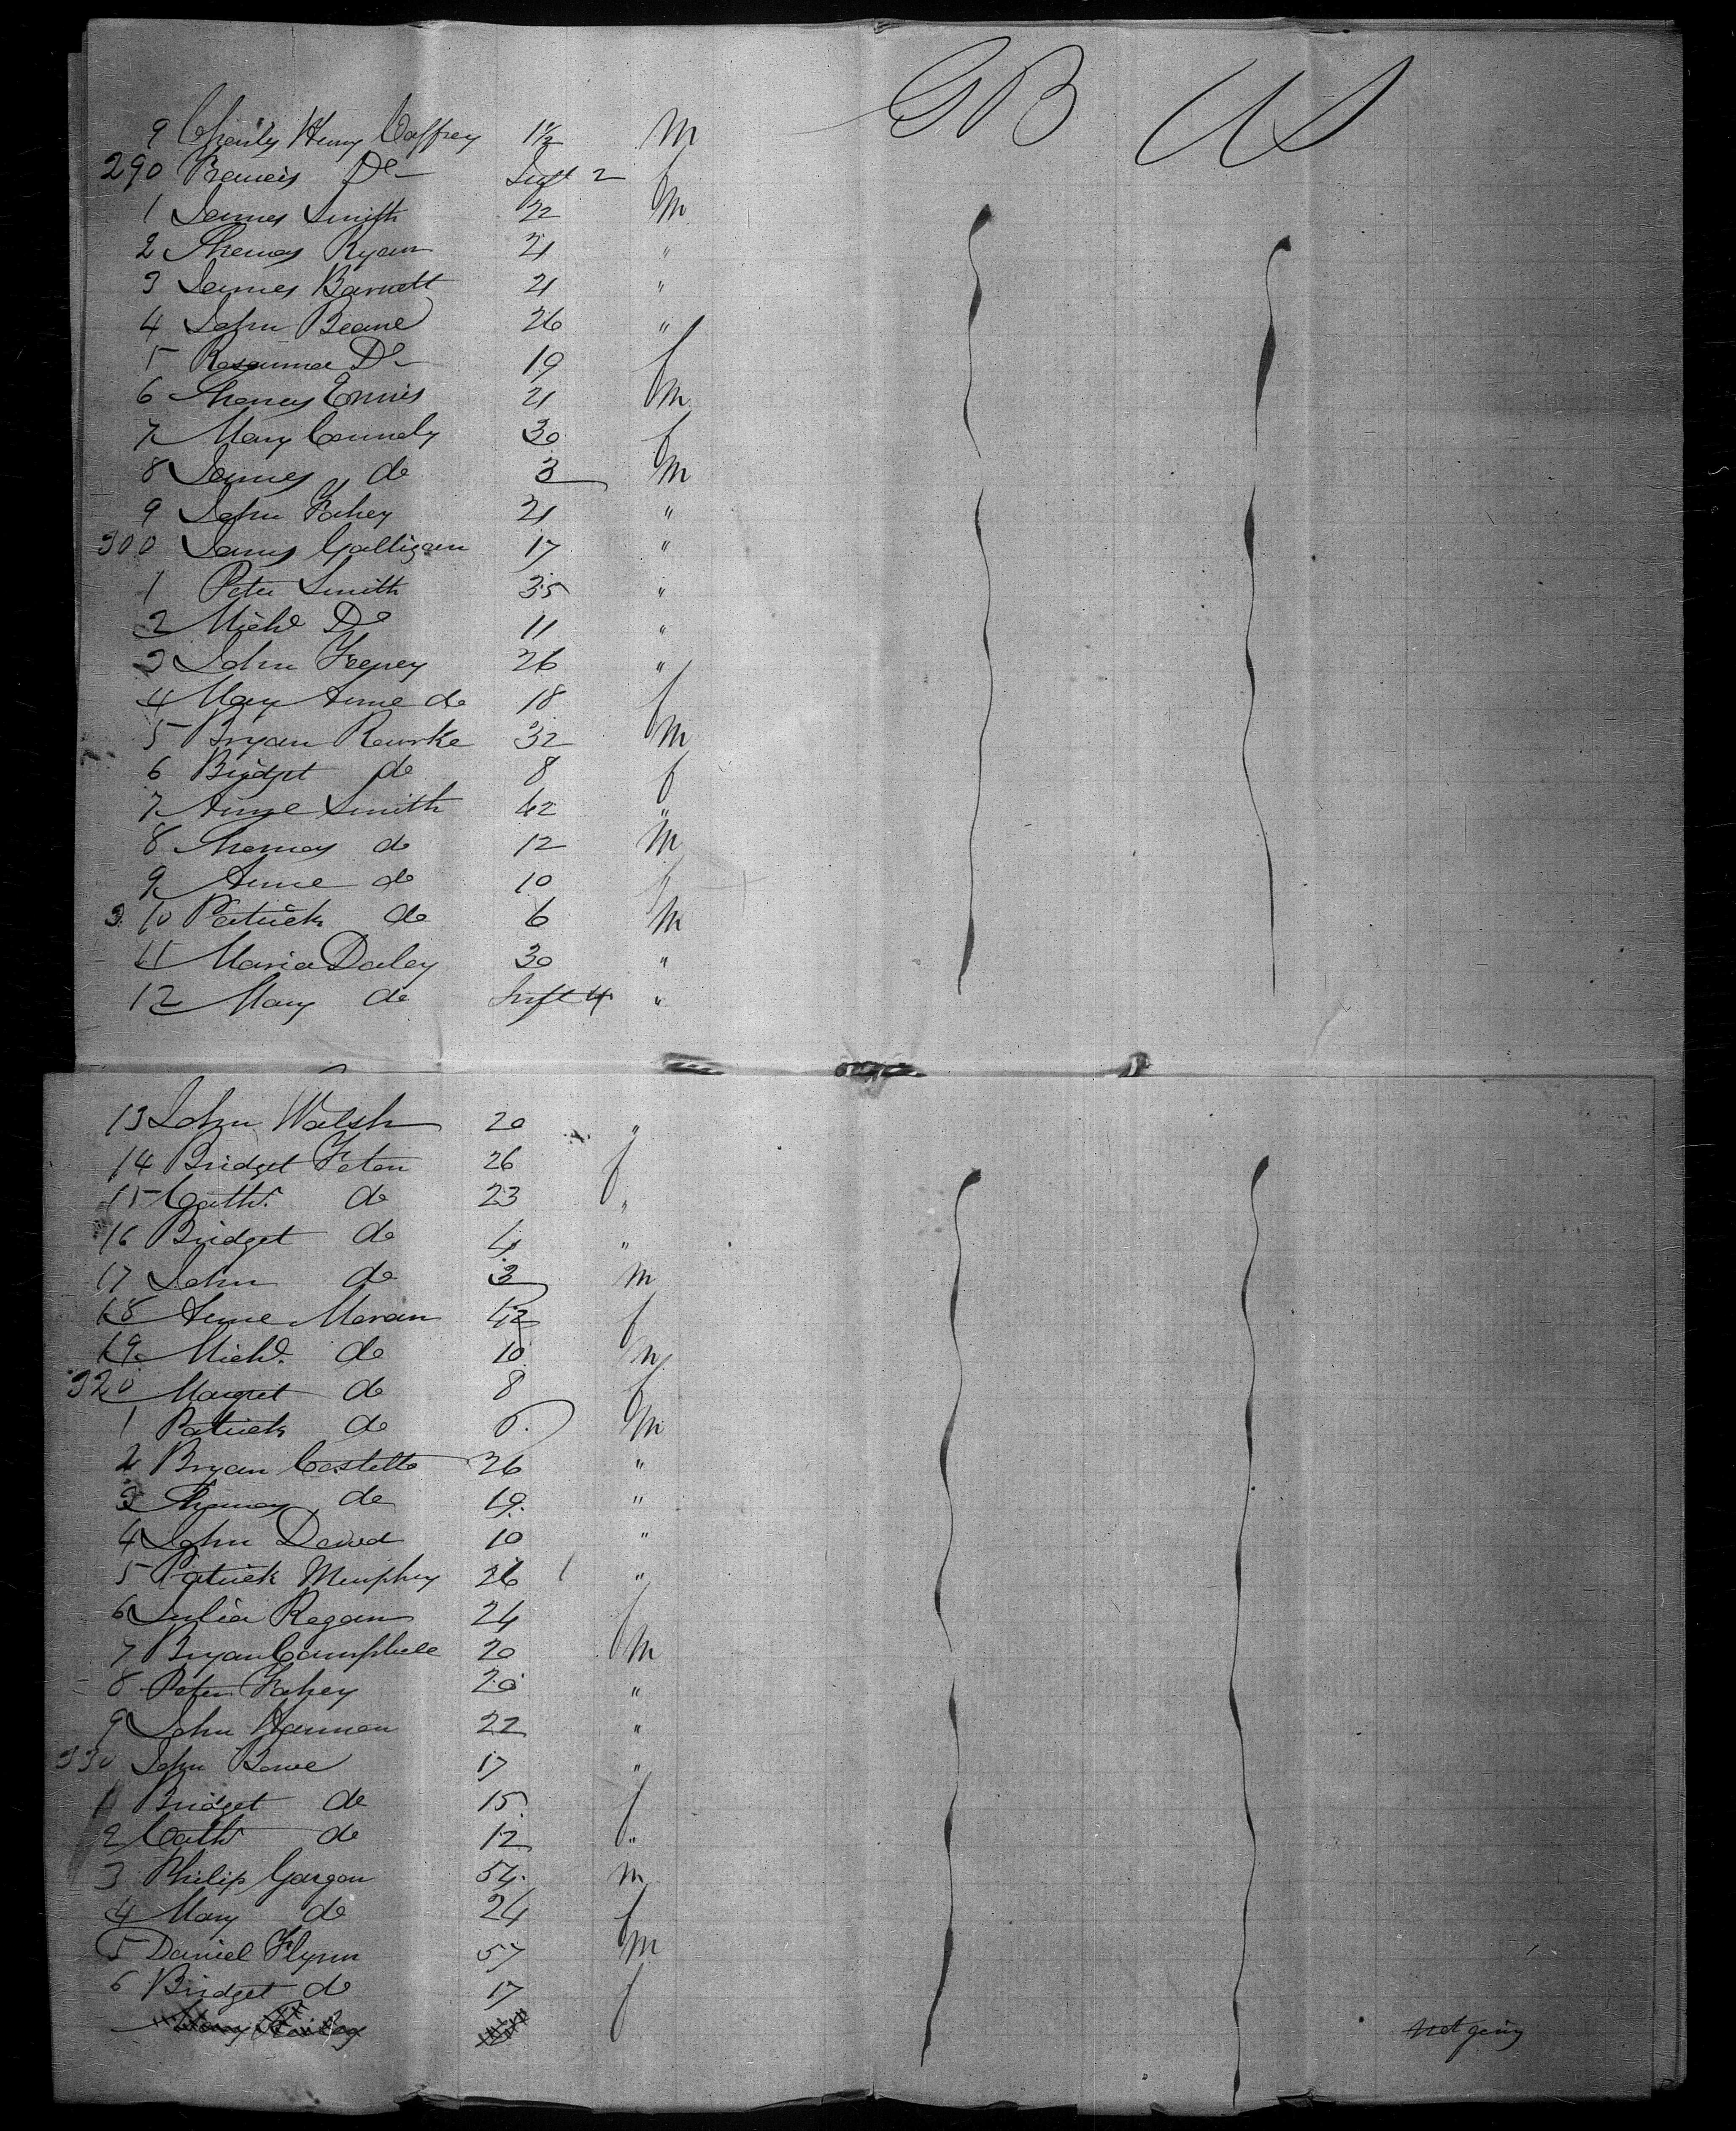 GB US
9 Charles Henry Caffrey 1 1/2 m
290 Francis Do Inft 2 f
1 James Smith 22 m
2 Thomas Ryan 21 "
3 James Barnett 21 "
4 John Beane 26 "
5 Rosanna Do 19 f
6 Thomas Ennis 21 m
7 Mary Connely 30 f
8 James do 3 m
9 John Fahey 21 "
300 James Galligan 17 "
1 Peter Smith 35 "
2 Michl Do 11 "
3 John Feeney 26 "
4 Mary Anne do 18 f
5 Bryan Rourke 32 m
6 Bridget do 8 f
7 Anne Smith 42 "
8 Thomas do 12 m
9 Anne do 10 f
3 10 Patrick do 6 m
11 Maria Daley 30 "
12 Mary do Inft 4 "
13 John Walsh 20 "
14 Bridget 26 f
15 Cathe do 23 "
16 Bridget do 4 "
17 John do 3 m
18 Anne Moran 42 f
19 Michl. do 10 m
320 Margret do 8 f
1 Patrick do 6 m
2 Bryan Costello 26 "
3 Thomas do 19 "
4 John 10 "
5 Patrick Murphy 26 "
6 Julia Regan 24 f
7 Bryan Campbell 20 m
8 Peter Fahey 20 "
9 John Hannon 22 "
330 John Bowe 17 "
1 Bridget do 15 f
2 Cathe do 12 "
3 Philip Gargan 54 m
4 Mary do 24 f
5 Daniel Flynn 57 m
6 Bridget do 17 f
not going